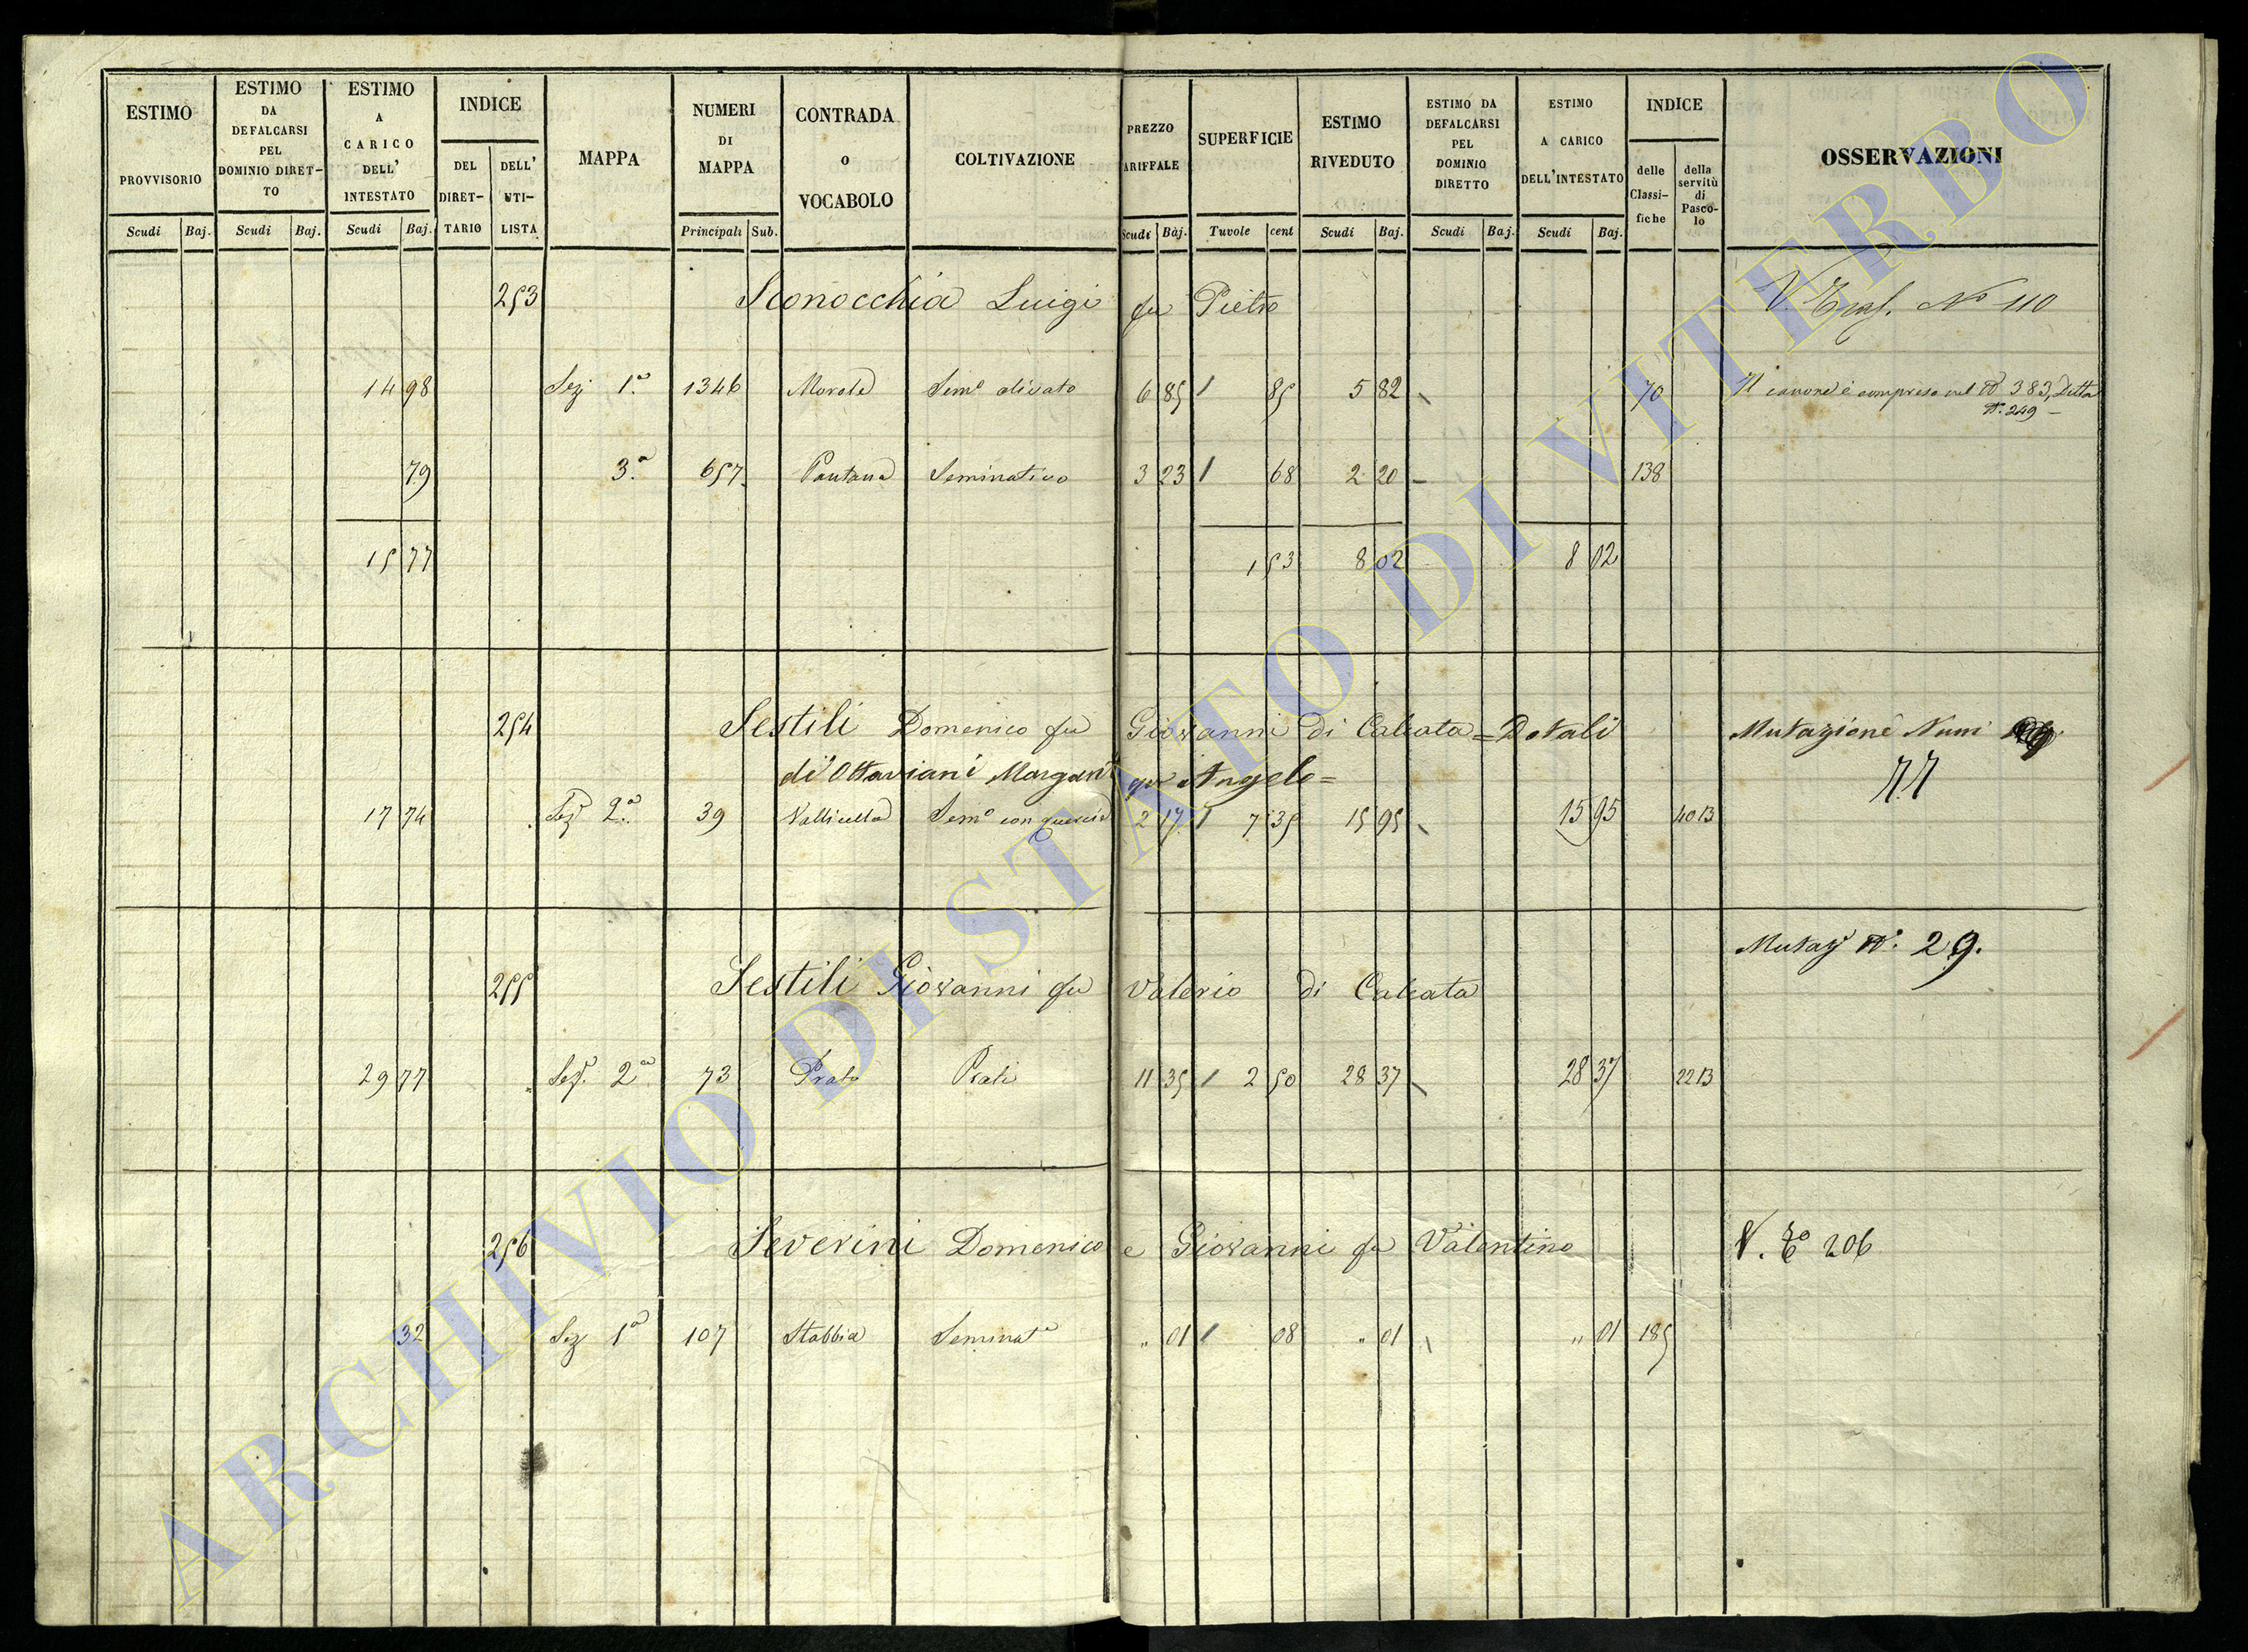 ESTIMO PROVVISORIO Scudi Baj.
ESTIMO DA DEFALCARSI PEL DOMINIO DIRET-TO Scudi Baj.
ESTIMO A CARICO DELL' INTESTATO Scudi Baj.
INDICE DEL DIRET-TARIO DELL' UTI-LISTA
MAPPA
NUMERI DI MAPPA Principali Sub.
CONTRADA O VOCABOLO
COLTIVAZIONE
PREZZO ARIFFALE Scudi Baj.
SUPERFICIE Tavole cent
ESTIMO RIVEDUTO Scudi Baj.
ESTIMO DA DEFALCARSI PEL DOMINIO DIRETTO Scudi Baj.
ESTIMO A CARICO DELL'INTESTATO Scudi Baj.
INDICE delle Classi-fiche della servitù di Pasco-lo
OSSERVAZIONI
253 Sconocchia Luigi fu Pietro V. Tras. No 110
14 98 Sez 1a 1346 Morole Semo olivato 6 85 1 85 5 82 70 Il canone è compreso nel No 383, Ditta
No 249 –
79 3a 657 Pantana Seminativo 3 23 1 68 2 20 – 138
15 77 1 53 8 02 8 02
254 Sestili Domenico fu Giovanni di Calcata = Dotali Mutazione Num
di Ottaviani Margari qm Angelo = 77
17 74 Sez 2a 39 Vallicella Semo con querce 2 17 1 7 35 15 95 15 95 40 13
Mutaz No. 29.
255 Sestili Giovanni fu Valerio di Calcata
29 77 Sez. 2a 73 Prato Prati 11 35 1 2 50 28 37 28 37 22 13
256 Severini Domenico e Giovanni fu Valentino V. To 206
32 Sez 1a 107 Stabbia Seminato " 01 1 08 " 01 " 01 185
ARCHIVIO DI STATO DI VITERBO